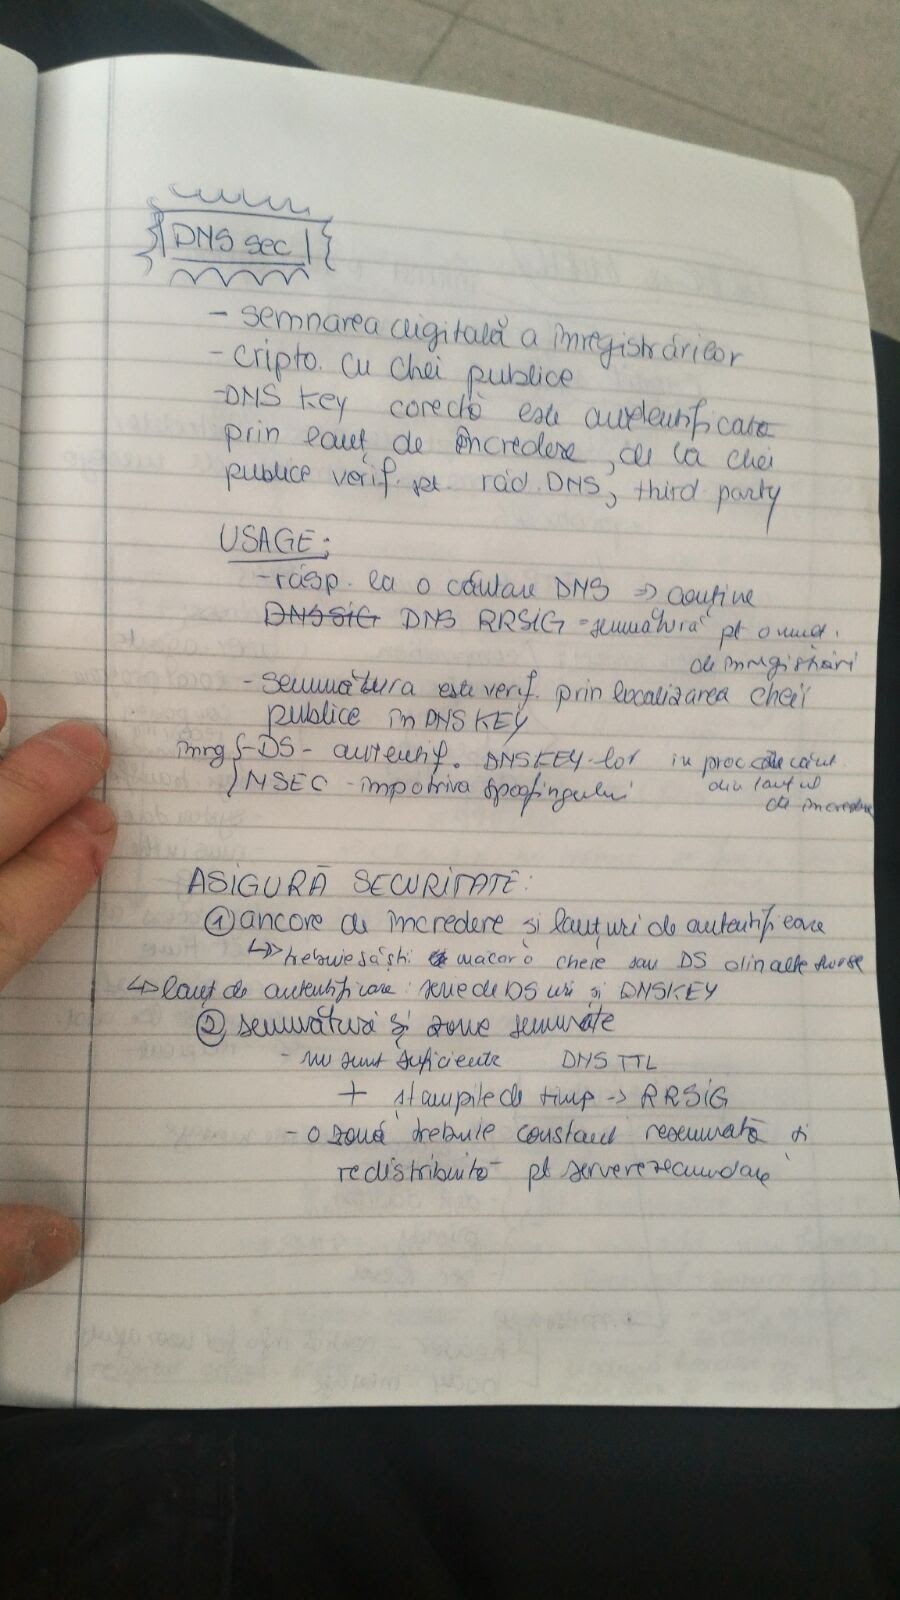 DNS sec
- semnarea digitală a înregistrărilor
- cripto. cu chei publice
- DNS KEY corectă este autentificată
prin lanț de încredere, de la chei
publice verif. pt. răd. DNS, third party
USAGE:
- răsp. la o căutare DNS => conține
DNSSIG DNS RRSIG = semnătură pt o
de înregistrări
- semnătura este verif. prin localizarea cheii
publice în DNSKEY
înrg { - DS - autentif. DNSKEY-lor in proc de căut.
NSEC - împotriva spoofingului din lanțul
de încredere
ASIGURĂ SECURITATE:
① ancore de încredere și lanțuri de autentificare
↳ trebuie să știi măcar o cheie sau DS din alte surse
↳ lanț de autentificare: serie de DS uri și DNSKEY
② semnături și zone semnate
- nu sunt suficiente DNS TTL
+ ștampile de timp -> RRSIG
- o zonă trebuie constant resemnată și
redistribuită pt servere secundare